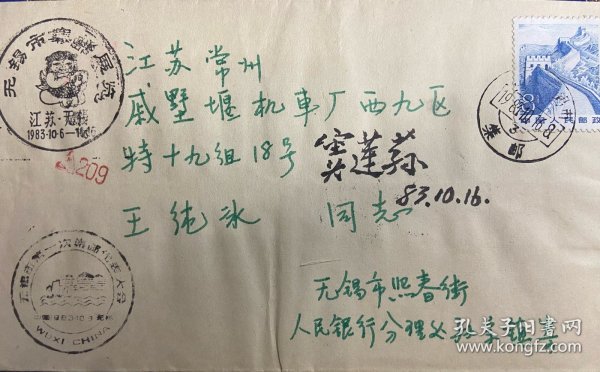 无锡市集邮展览
江苏·无锡
1983·10·6—10·16
209
江苏常州
戚墅堰机車厂西九区
特十九组18号
王纯冰 同志
莲荪
83.10.16.
8
人民邮政
无锡市第一次集邮代表大会
WUXI CHINA
无锡市熙春街
人民银行分理处
孔夫子旧书网
www.kongfz.com